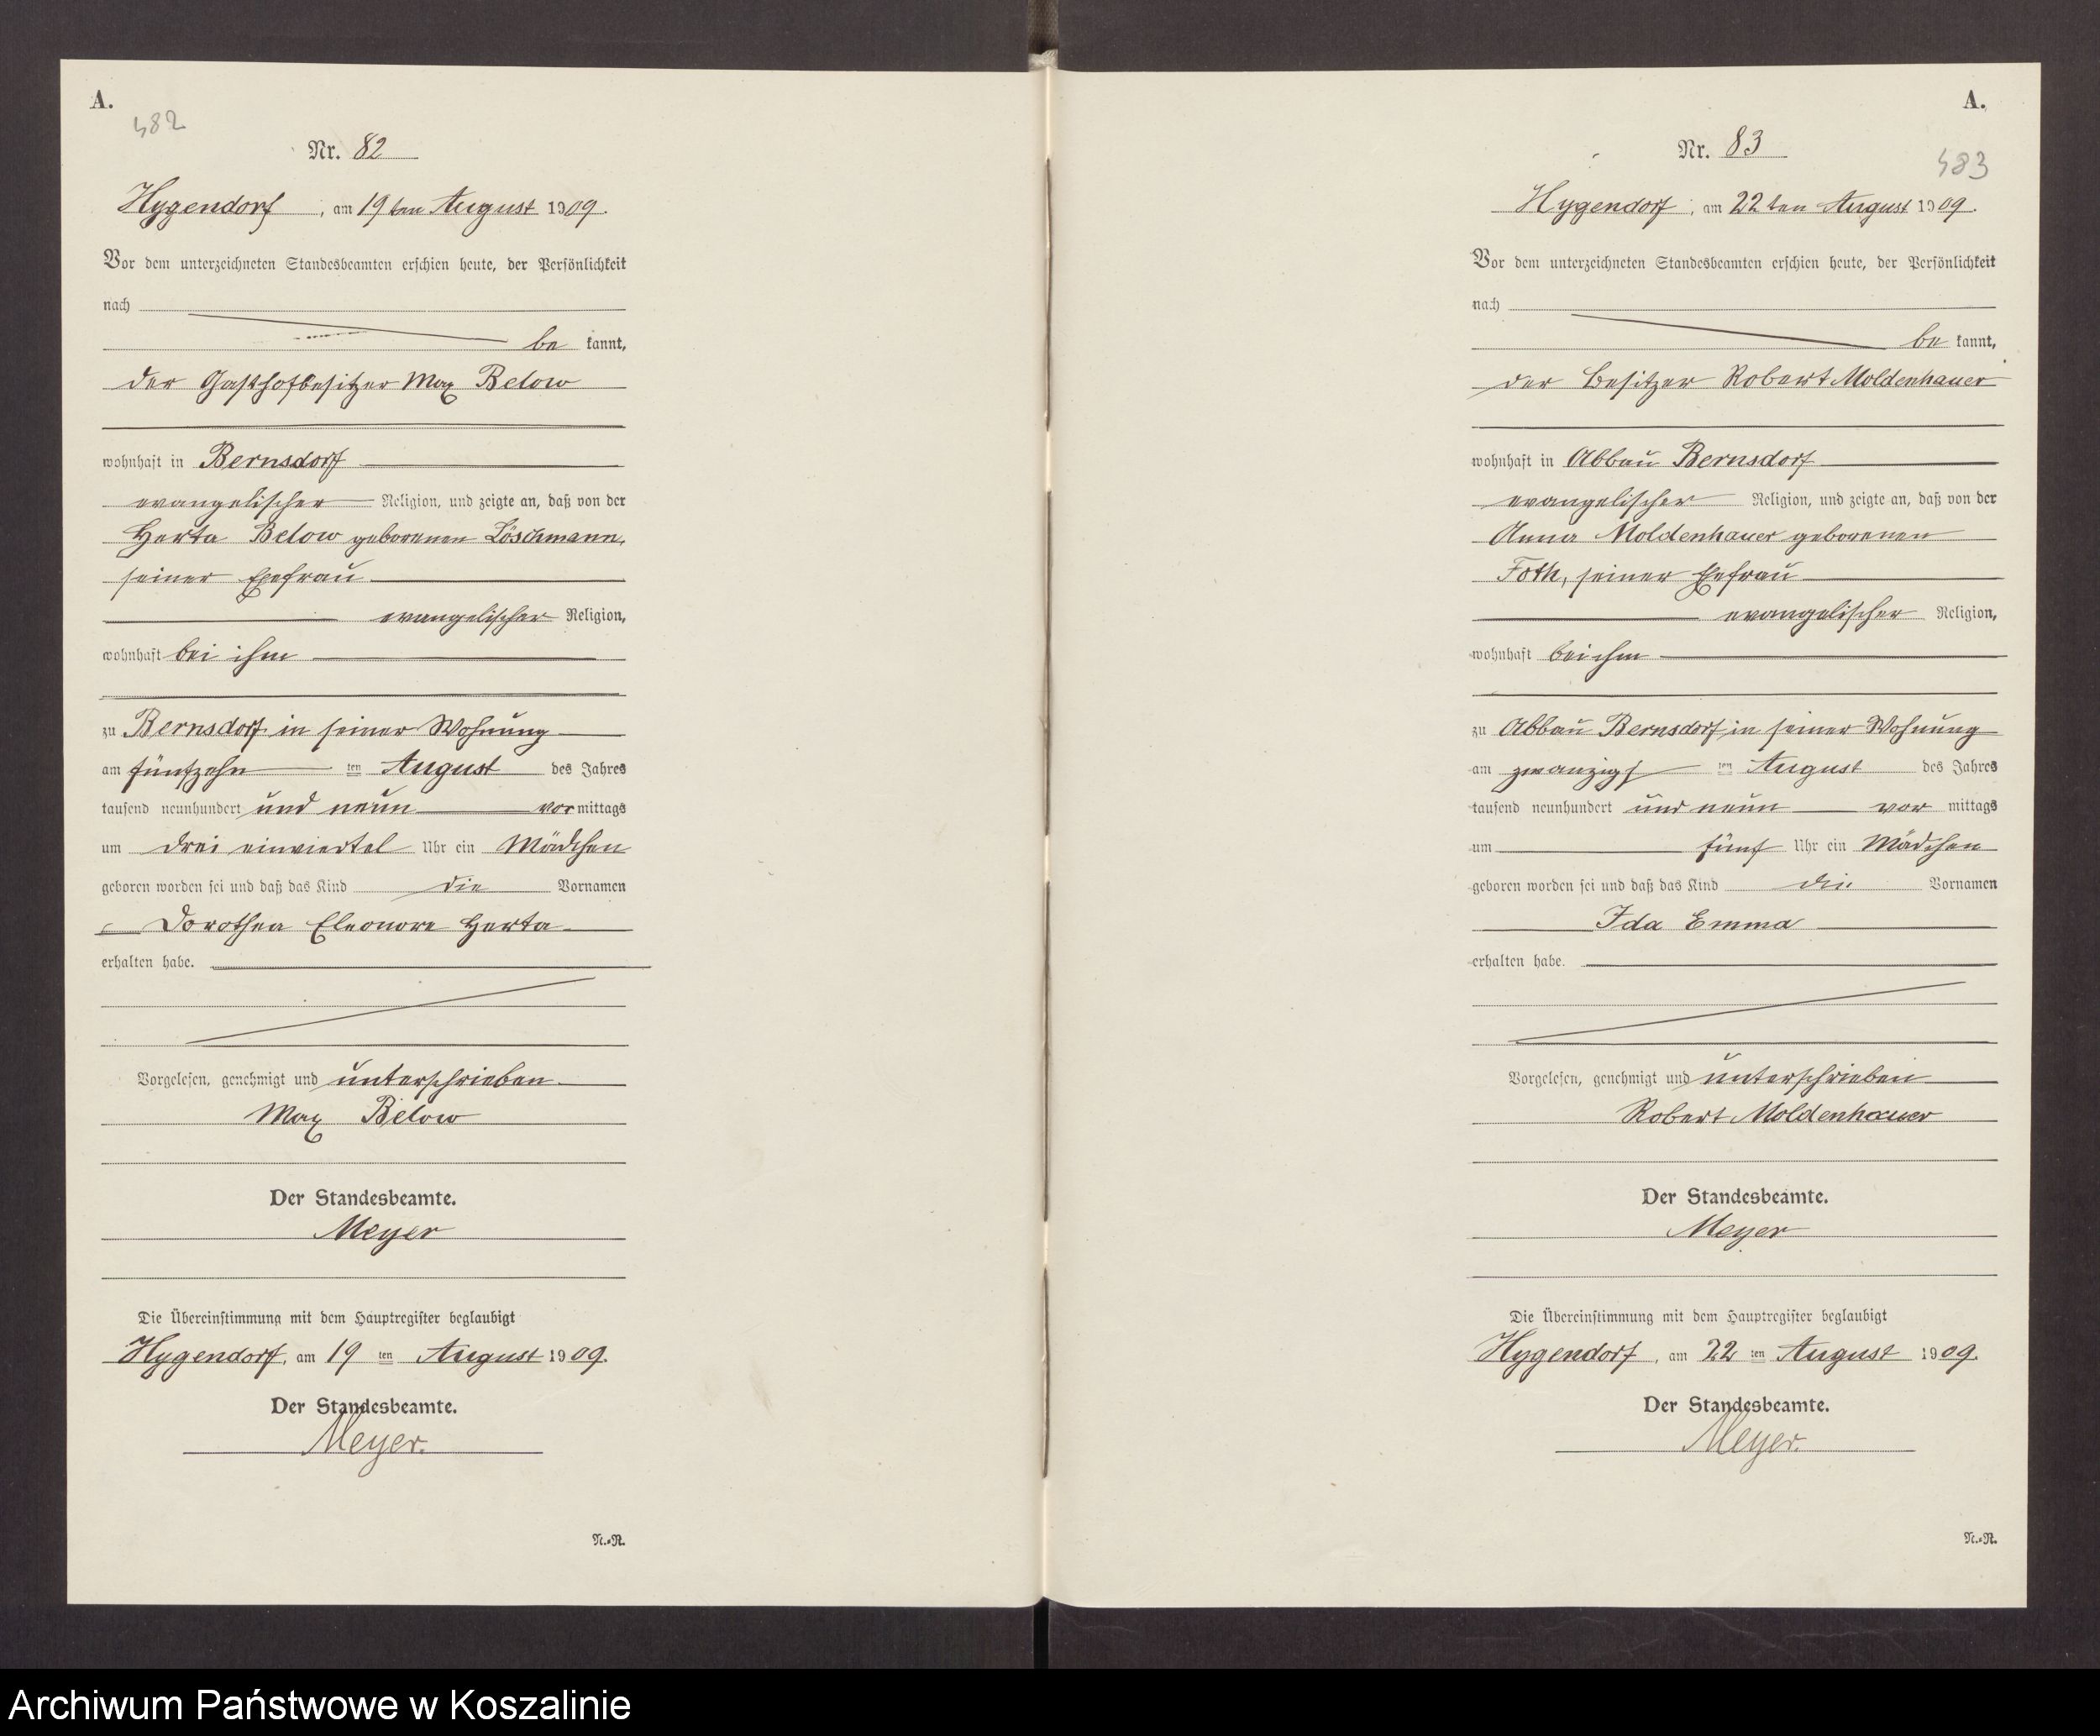 A.
482
Nr. 82
Hygendorf, am 19ten August 1909.
Vor dem unterzeichneten Standesbeamten erschien heute, der Persönlichkeit
nach
be kannt,
der Gasthofbesitzer Max Below
wohnhaft in Bernsdorf
evangelischer Religion, und zeigte an, daß von der
Herta Below geborenen Löschmann,
seiner Ehefrau
evangelischer Religion,
wohnhaft bei ihm
zu Bernsdorf in seiner Wohnung
am fünfzehn ten August des Jahres
tausend neunhundert und neun vormittags
um drei einviertel Uhr ein Mädchen
geboren worden sei und daß das Kind die Vornamen
Dorothea Eleonore Herta
erhalten habe.
Vorgelesen, genehmigt und unterschrieben
Max Below
Der Standesbeamte.
Meyer
Die Übereinstimmung mit dem Hauptregister beglaubigt
Hygendorf, am 19 ten August 1909.
Der Standesbeamte.
Meyer.
N.=R.
A.
483
Nr. 83
Hygendorf, am 22ten August 1909.
Vor dem unterzeichneten Standesbeamten erschien heute, der Persönlichkeit
nach
be kannt,
der Besitzer Robert Moldenhauer
wohnhaft in Abbau Bernsdorf
evangelischer Religion, und zeigte an, daß von der
Anna Moldenhauer geborenen
Foth, seiner Ehefrau
evangelischer Religion,
wohnhaft bei ihm
zu Abbau Bernsdorf, in seiner Wohnung
am zwanzigs ten August des Jahres
tausend neunhundert und neun vor mittags
um fünf Uhr ein Mädchen
geboren worden sei und daß das Kind die Vornamen
Ida Emma
erhalten habe.
Vorgelesen, genehmigt und unterschrieben
Robert Moldenhauer
Der Standesbeamte.
Meyer
Die Übereinstimmung mit dem Hauptregister beglaubigt
Hygendorf, am 22 ten August 1909.
Der Standesbeamte.
Meyer.
N.=R.
Archiwum Państwowe w Koszalinie